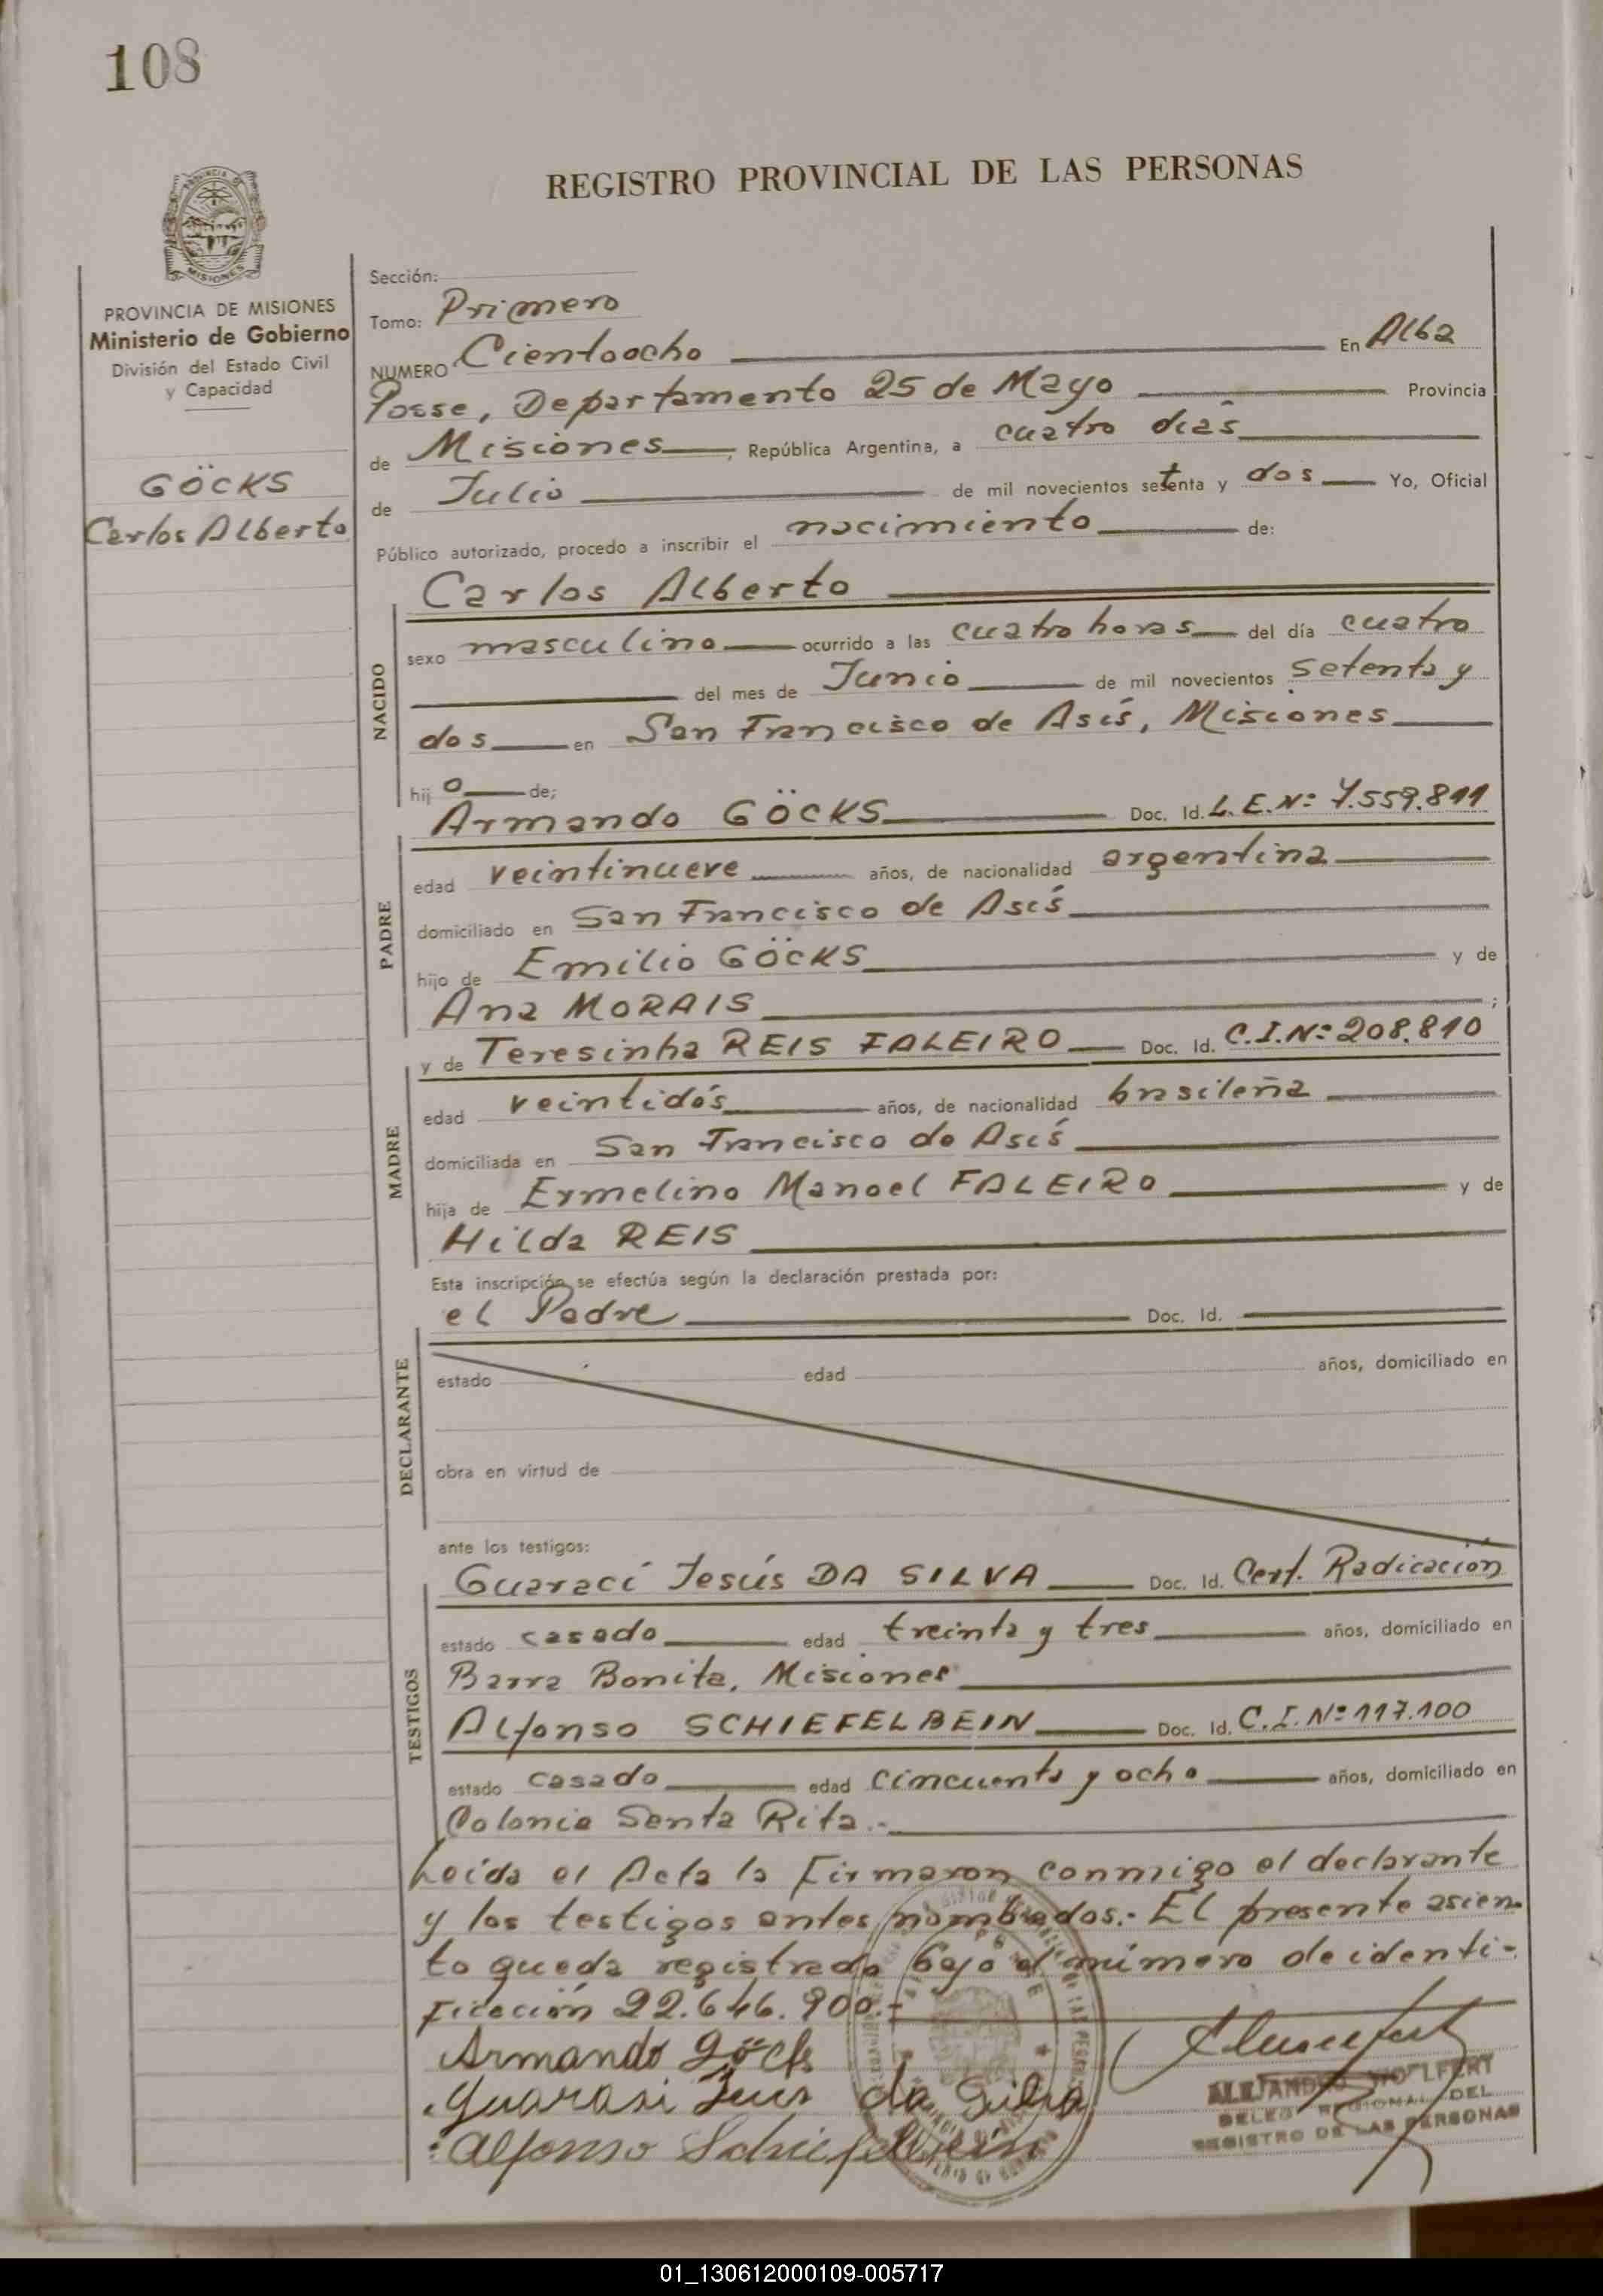 108
REGISTRO PROVINCIAL DE LAS PERSONAS
PROVINCIA DE MISIONES
Ministerio de Gobierno
División del Estado Civil
y Capacidad
GÖCKS
Carlos Alberto
Sección:
Tomo: Primero
NUMERO Cientoocho En Alba
Posse, Departamento 25 de Mayo Provincia
de Misiones, República Argentina, a cuatro dias
de Julio de mil novecientos setenta y dos Yo, Oficial
Público autorizado, procedo a inscribir el nacimiento de:
NACIDO
Carlos Alberto
sexo masculino ocurrido a las cuatro horas del día cuatro
del mes de Junio de mil novecientos setenta y
dos en San Francisco de Asís, Misiones
hij o de;
PADRE
Armando GÖCKS Doc. Id. L.E.Nº 7.559.811
edad veintinueve años, de nacionalidad argentina
domiciliado en San Francisco de Asís
hijo de Emilio GÖCKS y de
Ana MORAIS ;
MADRE
y de Teresinha REIS FALEIRO Doc. Id. C.I.Nº 208.810
edad veintidós años, de nacionalidad brasileña
domiciliada en San Francisco de Asís
hija de Ermelino Manoel FALEIRO y de
Hilda REIS
Esta inscripción se efectúa según la declaración prestada por:
el Padre Doc. Id.
DECLARANTE
estado edad años, domiciliado en
obra en virtud de
ante los testigos:
TESTIGOS
Guaraci Jesús DA SILVA Doc. Id. Cert. Radicación
estado casado edad treinta y tres años, domiciliado en
Barra Bonita, Misiones
Alfonso SCHIEFELBEIN Doc. Id. C.I. Nº 117.100
estado casado edad cincuenta y ocho años, domiciliado en
Colonia Santa Rita.-
Leída el Acta la firmaron conmigo el declarante
y los testigos antes nombrados.- El presente asien-
to queda registrado bajo el número de identi-
ficación 22.646.900.-
Armando Göcks
Guarasi Jesus da Silva
Alfonso Schiefelbein
ALEJANDRO WOLFERT
DELEG. REGIONAL DEL
REGISTRO DE LAS PERSONAS
01_130612000109-005717